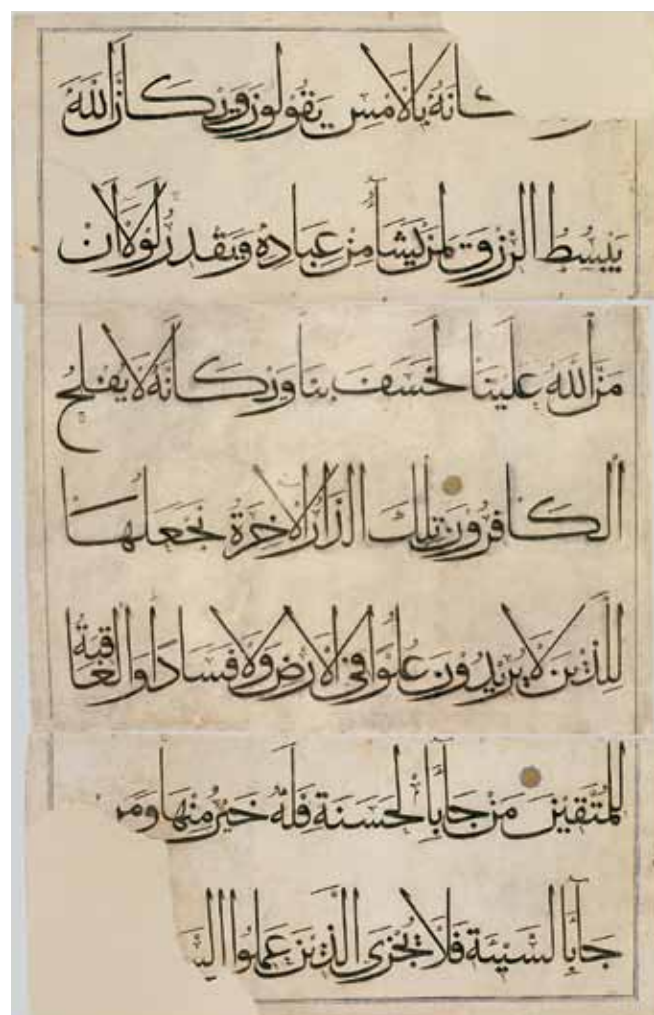 كانه بالامس يقولون ويكان الله
يبسط الرزق لمن يشاء من عباده ويقدر لولا ان
من الله علينا لخسف بنا ويكانه لا يفلح
الكافرون تلك الدار الاخرة نجعلها
للذين لا يريدون علوا في الارض ولا فسادا والعاقبة
للمتقين من جاء بالحسنة فله خير منها ومن
جاء بالسيئة فلا يجزى الذين عملوا